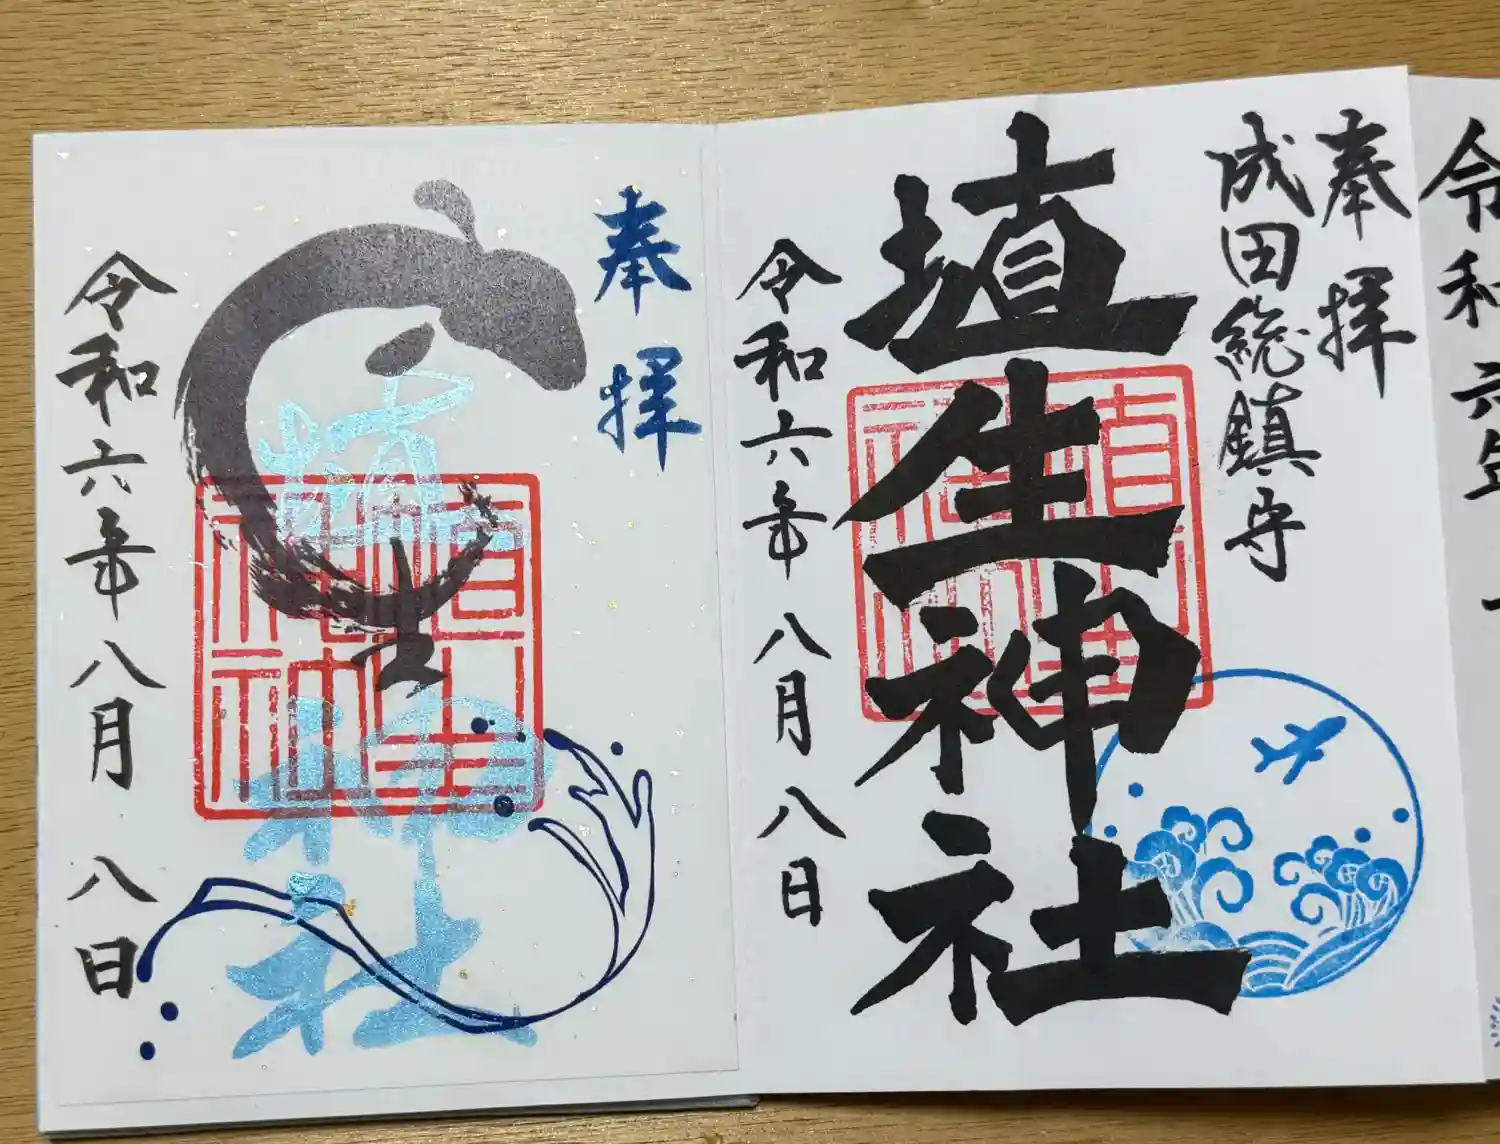 令和六年
奉拝
成田総鎮守
埴生神社
埴生
神社
令和六年八月八日
奉拝
埴生神社
埴生
神社
令和六年八月八日